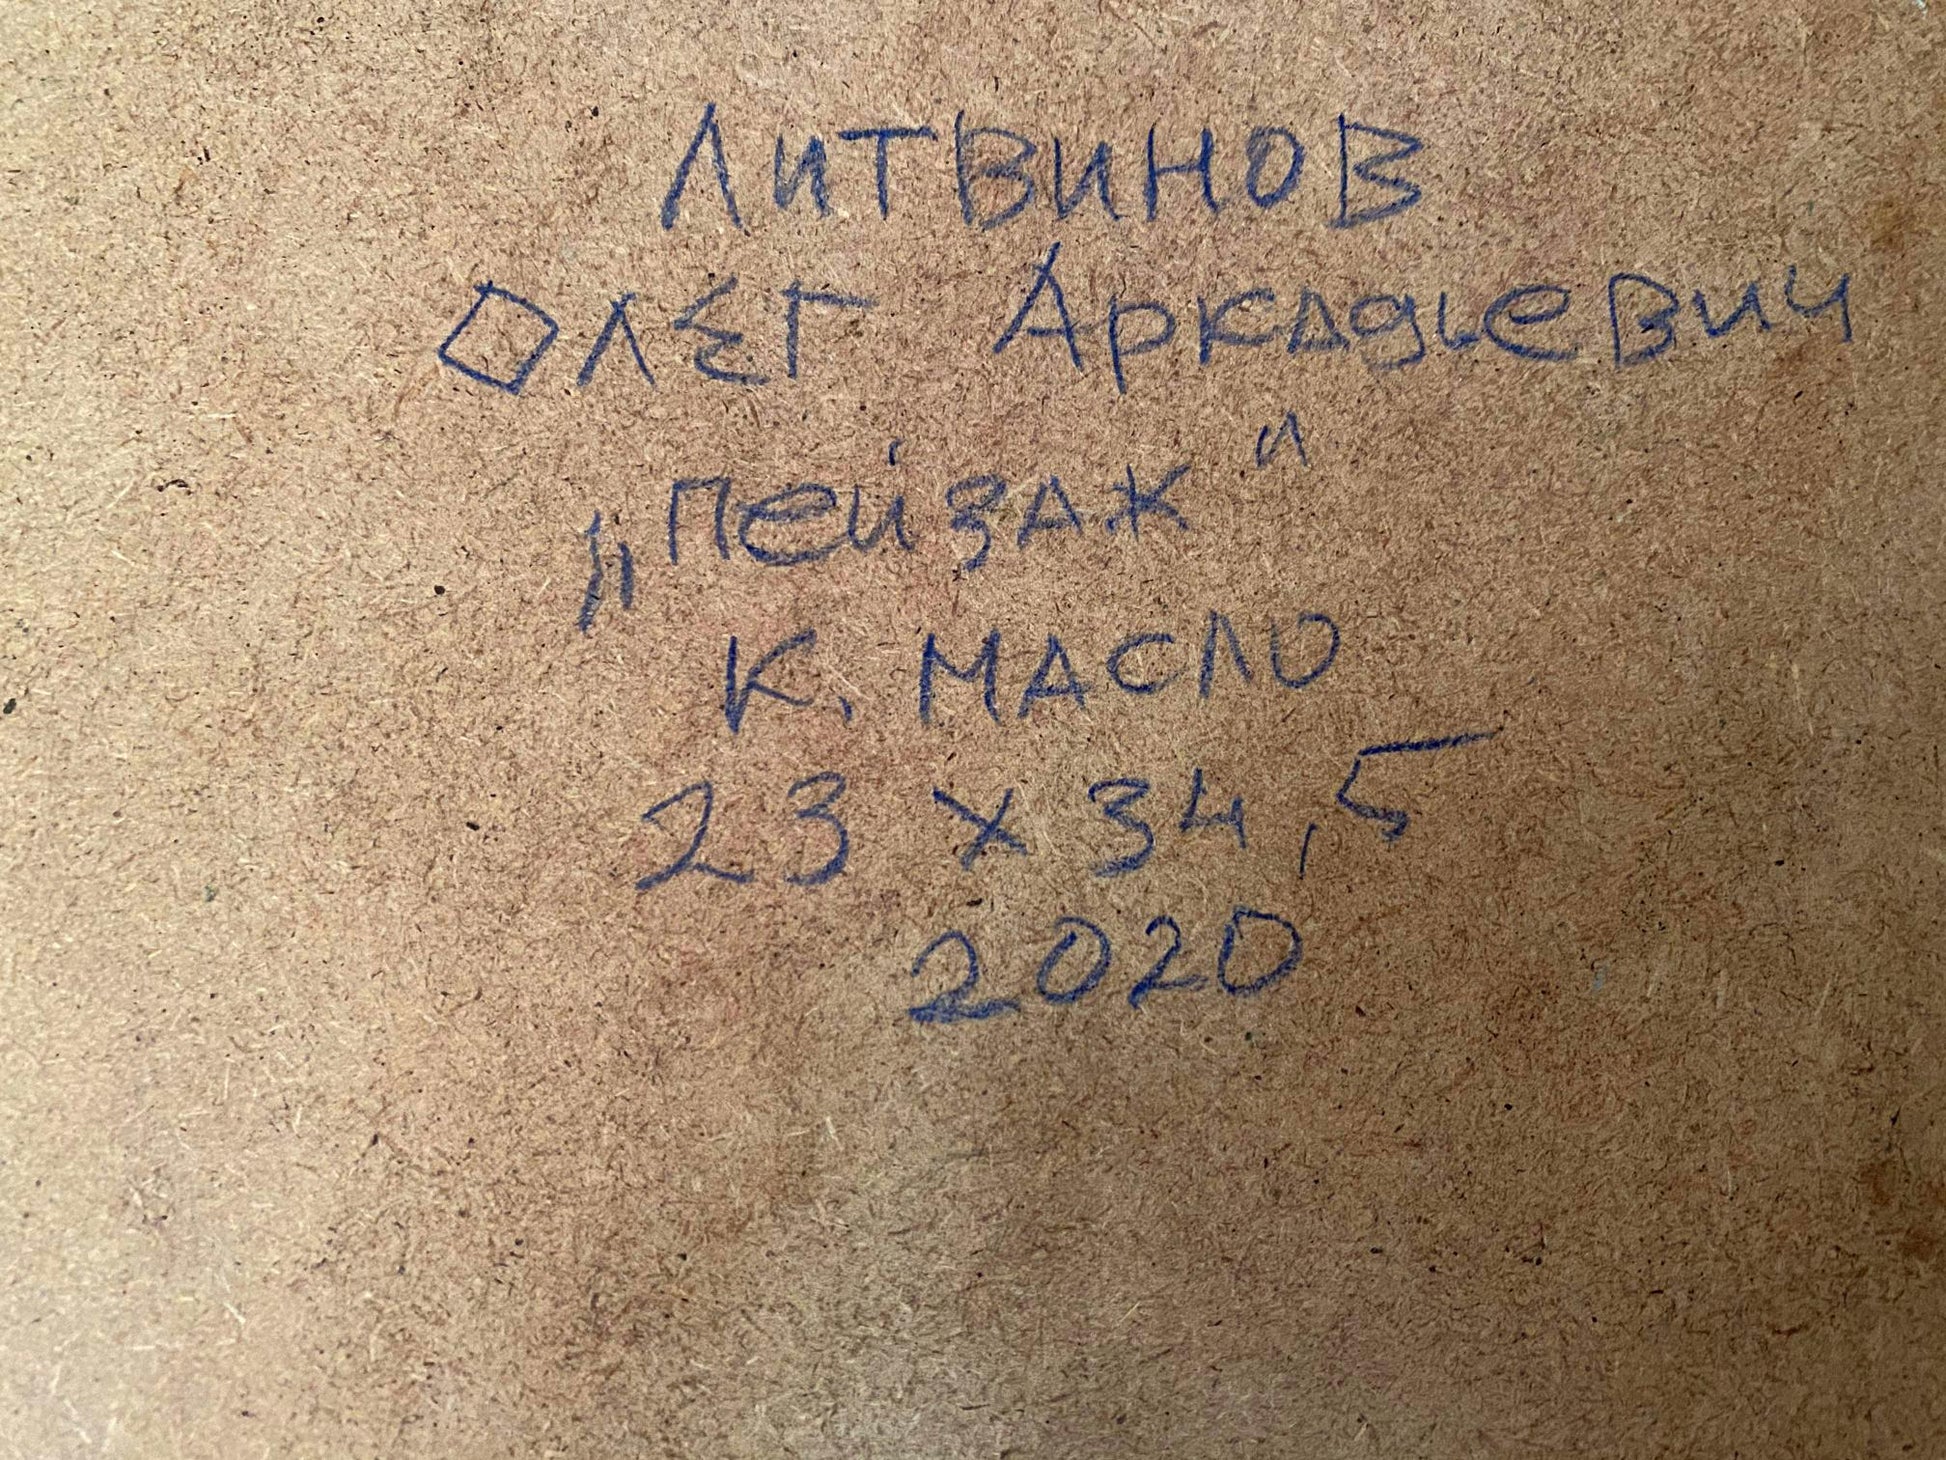 Литвинов
Олег Аркадьевич
„Пейзаж"
К. масло
23 х 34,5
2020